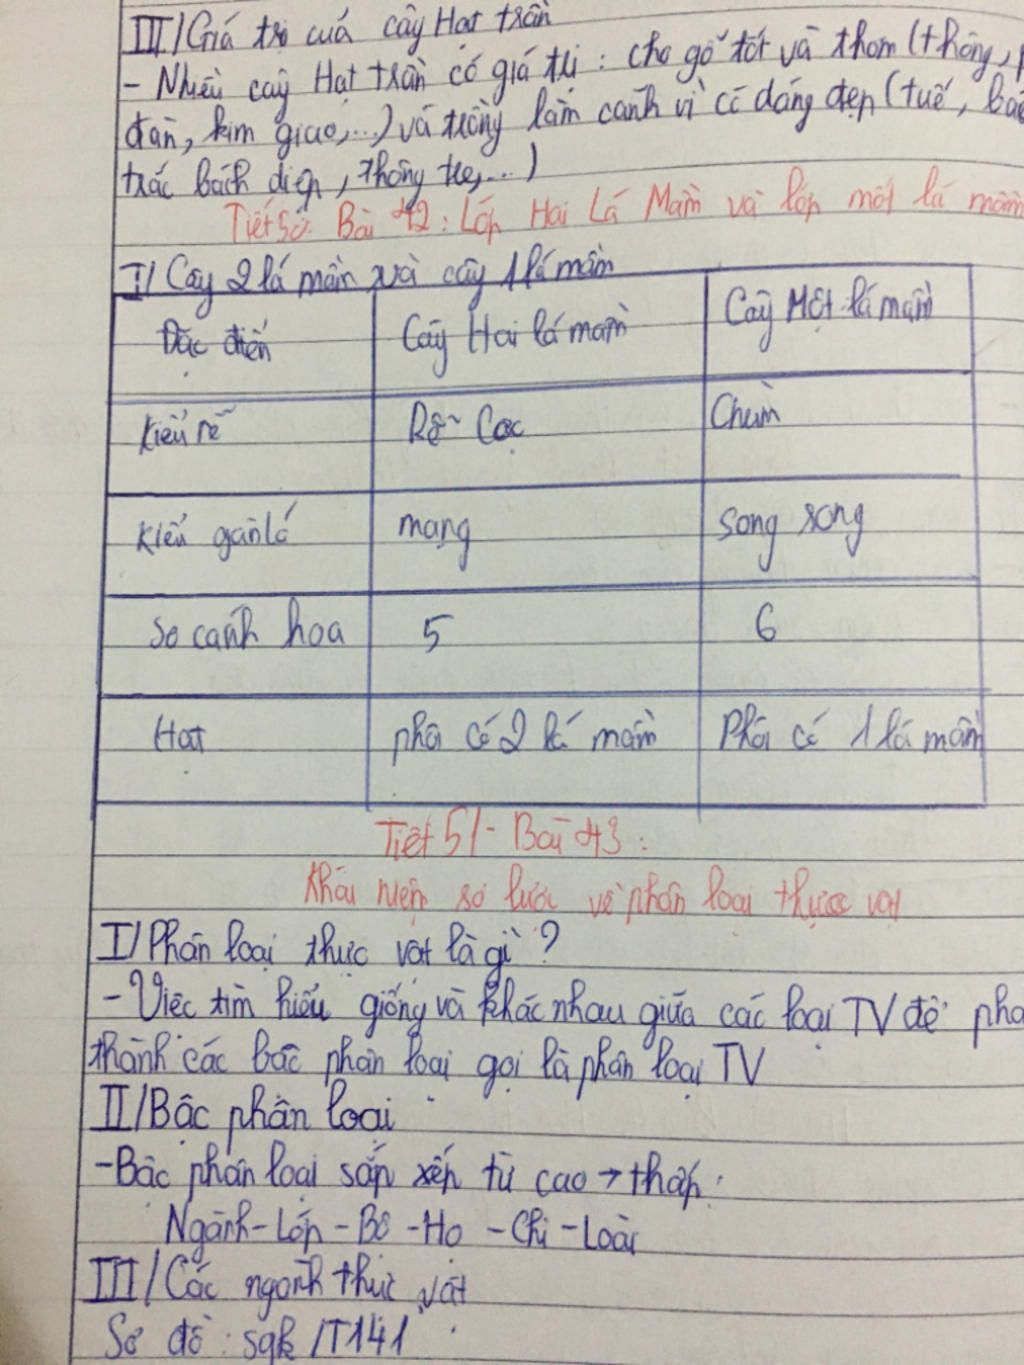 III/Giá trị của cây Hạt trần
- Nhiều cây Hạt trần có giá trị : cho gỗ tốt và thơm (thông,
đàn, kim giao,...) và trồng làm cảnh vì có dáng đẹp (tuế,
trắc bách diệp, thông tre,...)
Tiết 50: Bài 42: Lớp Hai Lá Mầm và lớp một lá mầm
I/ Cây 2 lá mầm và cây 1 lá mầm
Đặc điển Cây Hai lá mầm Cây Một lá mầm
Kiểu rễ Rễ Cọc Chùm
Kiểu gân lá mạng Song song
Số cánh hoa 5 6
Hạt phôi có 2 lá mầm Phôi có 1 lá mầm
Tiết 51- Bài 43:
Khái niệm sơ lược về phân loại thực vật
I/Phân loại thực vật là gì?
-Việc tìm hiểu giống và khác nhau giữa các loại TV để
thành các bậc phân loại gọi là phân loại TV
II/Bậc phân loại
-Bậc phân loại sắp xếp từ cao → thấp.
Ngành-Lớp-Bộ-Họ-Chi-Loài
III/Các ngành thực vật
Sơ đồ: sgk/T141